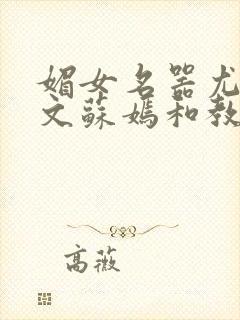 媚女名器尤
文蘇媽和教
高薇